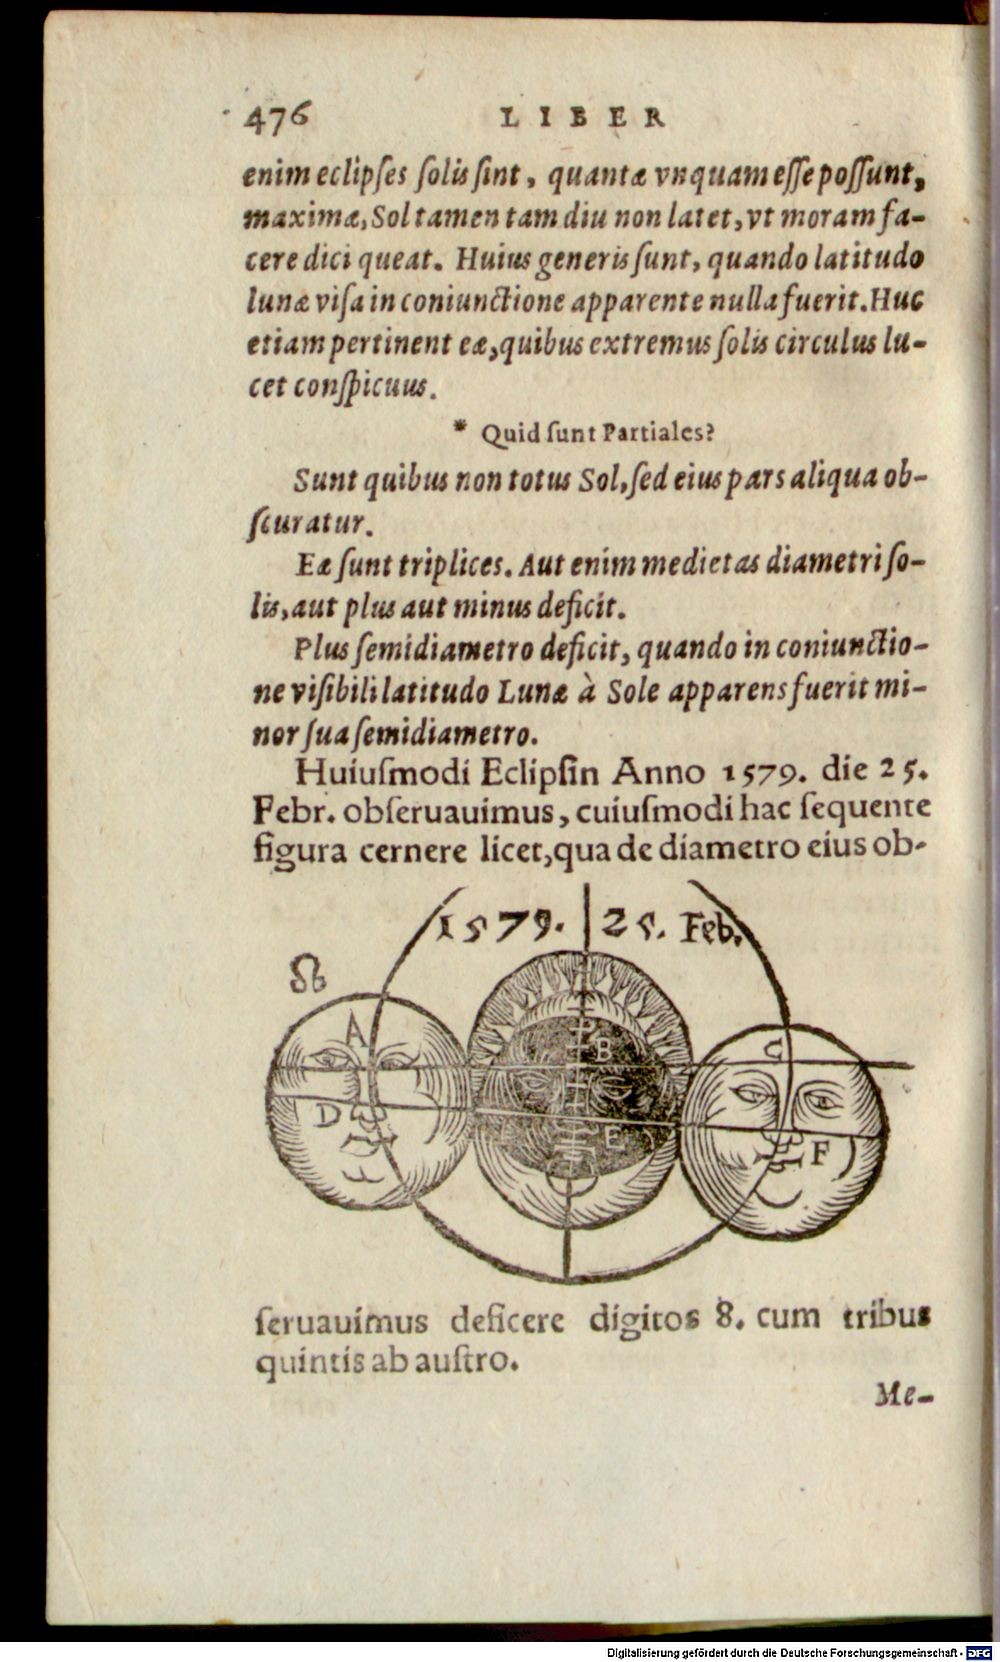 476 LIBER
enim eclipſes ſolis ſint, quantæ vnquam eſſe poſſunt,
maximæ, Sol tamen tam diu non latet, vt moram fa-
cere dici queat. Huius generis ſunt, quando latitudo
lunæ viſa in coniunctione apparente nulla fuerit. Huc
etiam pertinent eæ, quibus extremus ſolis circulus lu-
cet conſpicuus.
* Quid ſunt Partiales?
Sunt quibus non totus Sol, ſed eius pars aliqua ob-
ſcuratur.
Eæ ſunt triplices. Aut enim medietas diametri ſo-
lis, aut plus aut minus deficit.
Plus ſemidiametro deficit, quando in coniunctio-
ne viſibili latitudo Lunæ à Sole apparens fuerit mi-
nor ſua ſemidiametro.
Huiuſmodi Eclipſin Anno 1579. die 25.
Febr. obſeruauimus, cuiuſmodi hac ſequente
figura cernere licet, qua de diametro eius ob-
1579. 25. Feb.
☊
A B C
D E F
ſeruauimus deficere digitos 8. cum tribus
quintis ab auſtro.
Me-
Digitalisierung gefördert durch die Deutsche Forschungsgemeinschaft - DFG